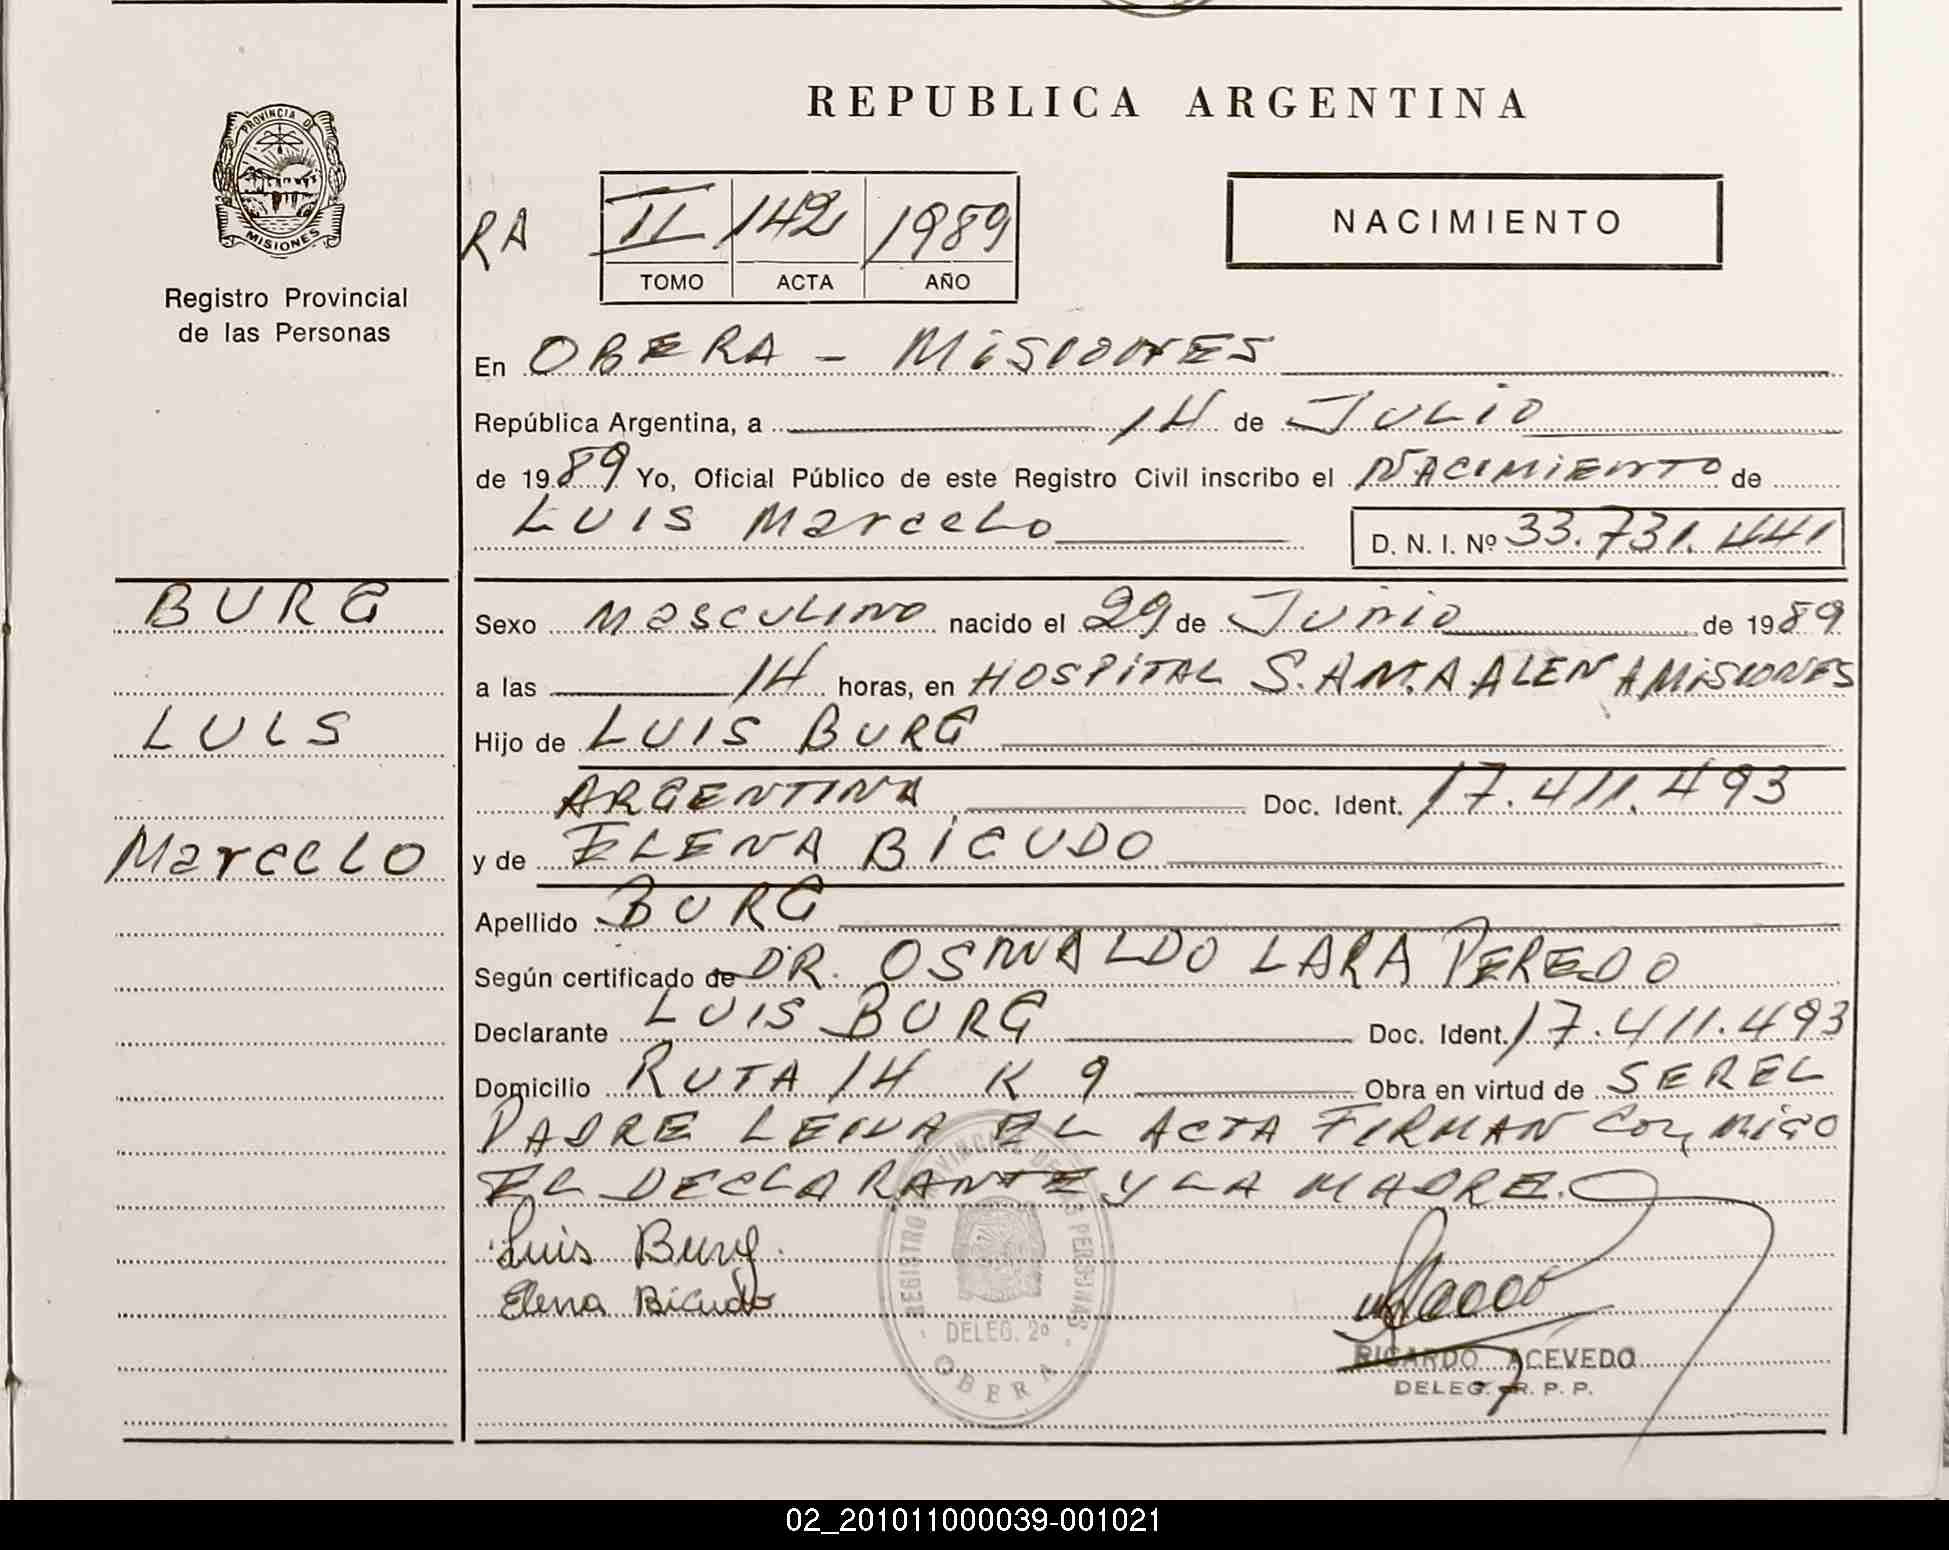 REPUBLICA ARGENTINA
PROVINCIA DE
MISIONES
Registro Provincial
de las Personas
RA
II 142 1989
TOMO ACTA AÑO
NACIMIENTO
En OBERA - MISIONES
República Argentina, a 14 de JULIO
de 1989 Yo, Oficial Público de este Registro Civil inscribo el NACIMIENTO de
LUIS Marcelo
D. N. I. Nº 33.731.441
BURG
LUIS
Marcelo
Sexo Masculino nacido el 29 de Junio de 1989
a las 14 horas, en HOSPITAL S.AM.A ALEN A MISIONES
Hijo de LUIS BURG
ARGENTINA Doc. Ident. 17.411.493
y de ELENA BICUDO
Apellido BURG
Según certificado de DR. OSWALDO LARA PEREDO
Declarante LUIS BURG Doc. Ident. 17.411.493
Domicilio RUTA 14 K 9 Obra en virtud de SER EL
PADRE LEIDA EL ACTA FIRMAN Conmigo
EL DECLARANTE Y LA MADRE.
Luis Burg
Elena Bicudo
REGISTRO PROVINCIAL DE LAS PERSONAS
DELEG. 2º
OBERA
RICARDO ACEVEDO
DELEG. R. P. P.
02_201011000039-001021